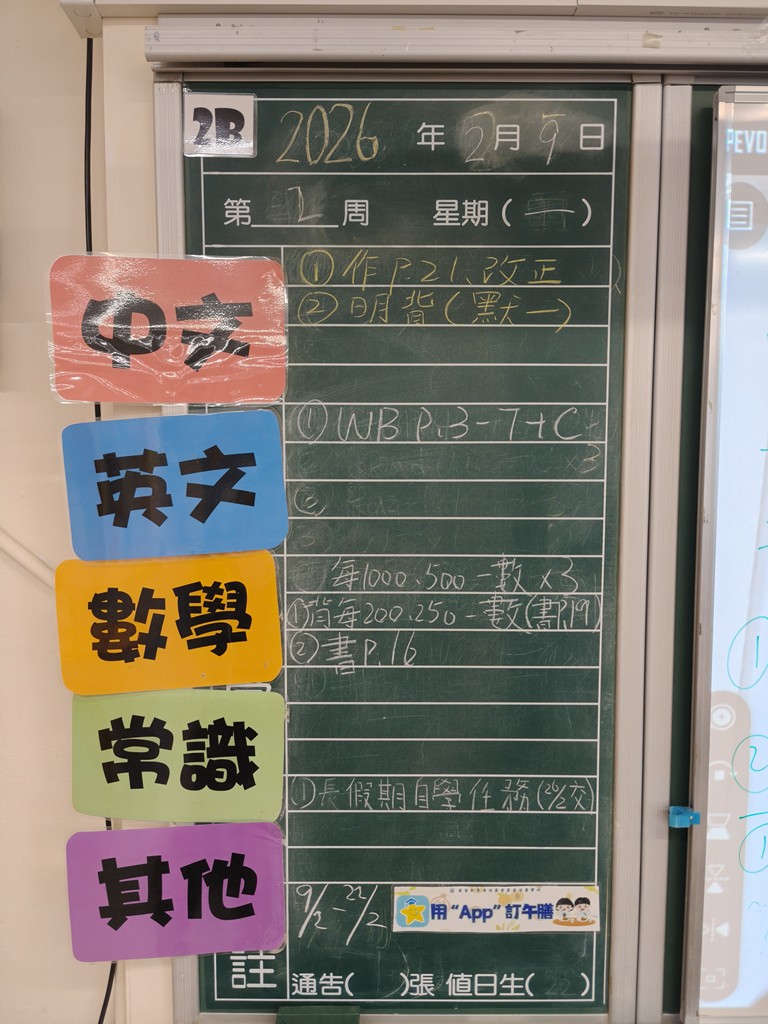 2B
2026年2月9日
第2周 星期(一)
中文
①作P.21、改正
②明背(默一)
英文
①WB P.3-7+C
x3
數學
每1000、500一數 x3
①背每200、250一數(書P.19)
②書P.16
常識
①長假期自學任務(26/2交)
其他
9/2-22/2
用“App”訂午膳
註
通告( )張 值日生( )
PEVO
①
②